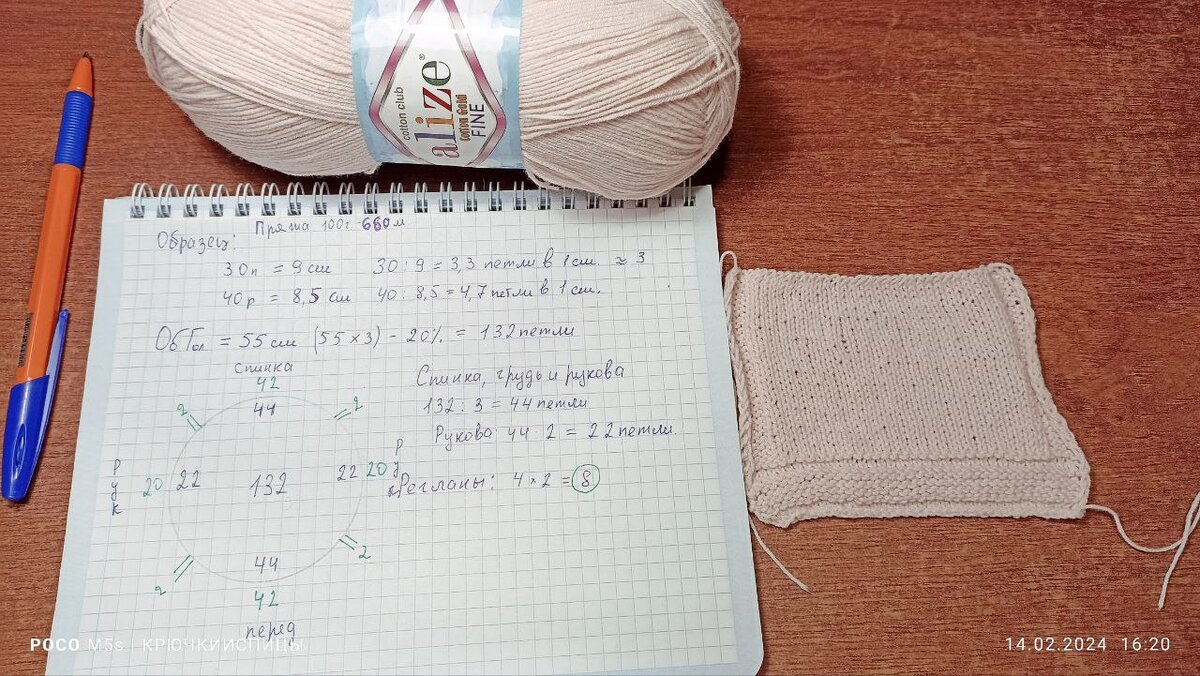 cotton club
alize®
Cotton Gold
FINE
Пряжа 100г-660м
Образец:
30п = 9 см 30:9 = 3,3 петли в 1 см. ≈ 3
40р = 8,5 см 40:8,5 = 4,7 петли в 1 см.
ОбГол = 55 см (55×3) - 20% = 132 петли
Спинка
42
44
2
2
Спинка, грудь и рукова
132 : 3 = 44 петли
Рукова 44:2 = 22 петли.
Рук
20 22
132
22 20
Рук
Регланы: 4×2 = 8
2
2
44
42
перед
POCO M5s | КРЮЧКИИСПИЦЫ
14.02.2024 16:20